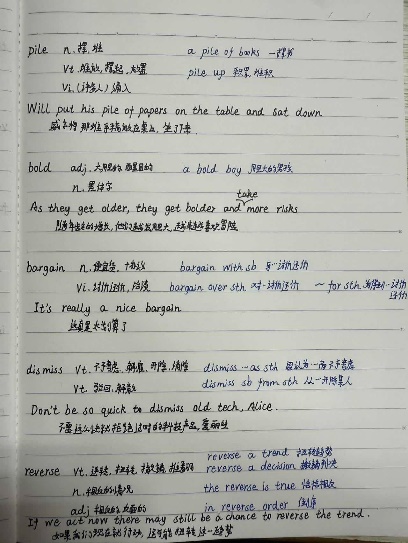 pile n. 摞, 堆 a pile of books 一摞书
vt. 堆放, 摞起, 放置 pile up 积累, 堆积
vi. (许多人) 涌入
Will put his pile of papers on the table and sat down
bold adj. 大胆的 a bold boy 胆大的男孩
n. 黑体字
take
As they get older, they get bolder and more risks
bargain n. 便宜货, 协议 bargain with sb 与…讨价还价
vi. 讨价还价, 洽谈 bargain over sth 对…讨价还价 ~ for sth 讨价还价
It's really a nice bargain
这真是太划算了
dismiss vt. 不予考虑, 解雇, 开除 dismiss … as sth 因认为…而不予考虑
vt. 驳回 dismiss sb from sth 从…开除某人
Don't be so quick to dismiss old tech, Alice.
reverse a trend 扭转趋势
reverse vt. reverse a decision 撤销判决
n. 相反的情况 the reverse is true 恰恰相反
adj 相反的 in reverse order 倒序
If we act now there may still be a chance to reverse the trend.
如果我们现在就行动, 还可能扭转这一趋势